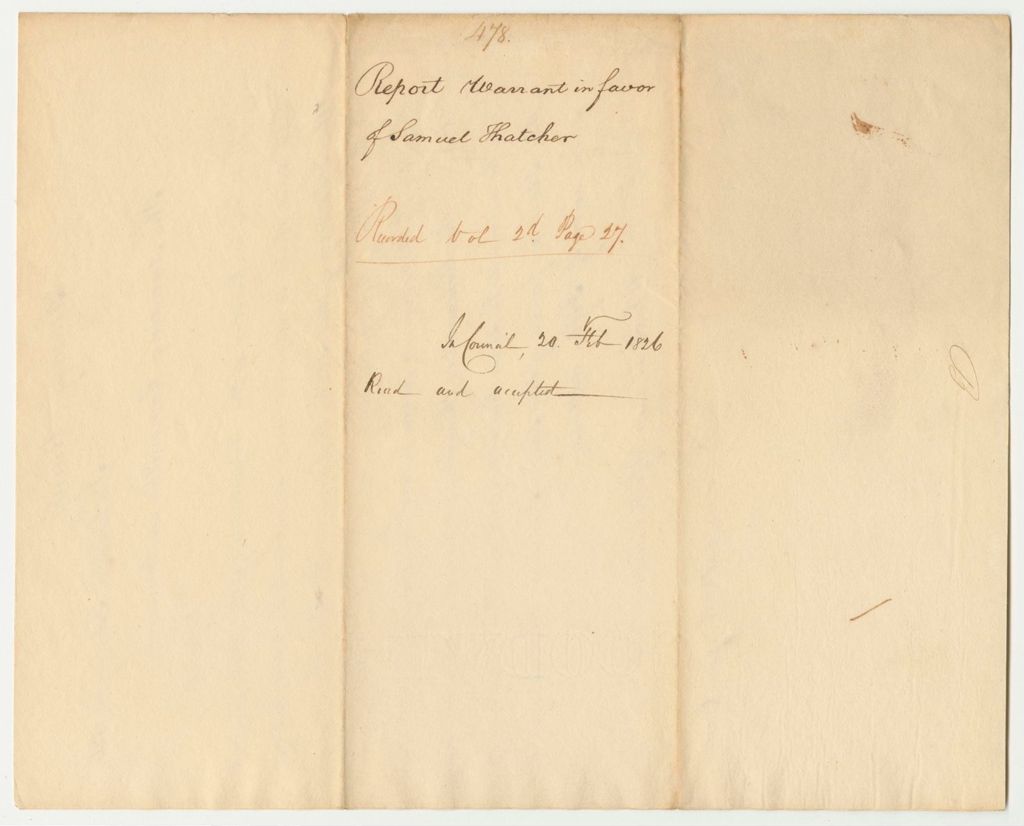 478.
Report Warrant in favor
of Samuel Thatcher
Recorded Vol 2d. Page 27.
In Council, 20. Feb 1826
Read and accepted